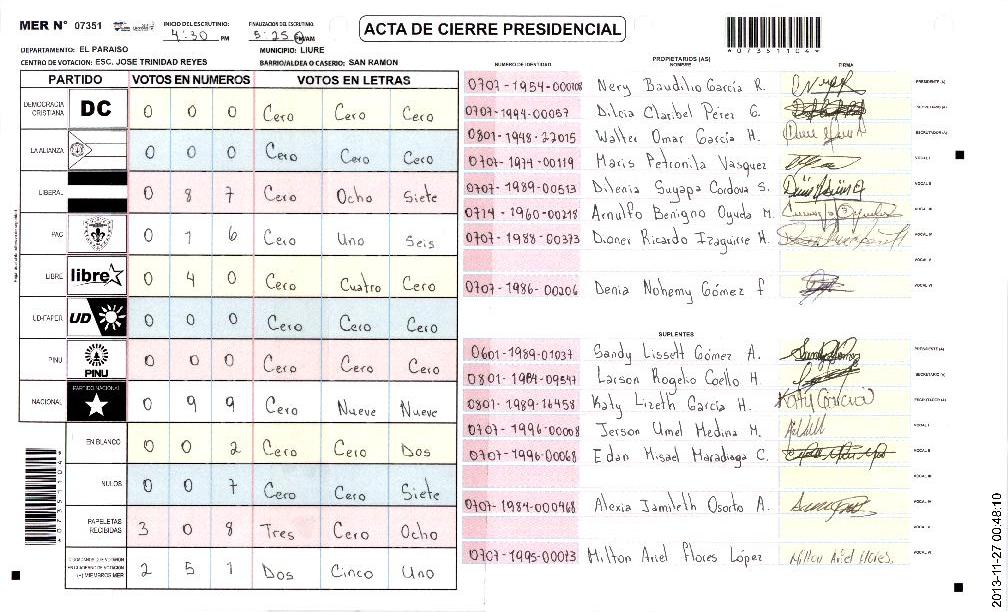 MER N° 07351
INICIO DEL ESCRUTINIO:
4:30 PM
FINALIZACION DEL ESCRUTINIO:
5:25 PM/AM
ACTA DE CIERRE PRESIDENCIAL
DEPARTAMENTO: EL PARAISO
MUNICIPIO: LIURE
CENTRO DE VOTACION: ESC. JOSE TRINIDAD REYES
BARRIO/ALDEA O CASERIO: SAN RAMON
07351104
PARTIDO VOTOS EN NUMEROS VOTOS EN LETRAS
DEMOCRACIA CRISTIANA DC 0 0 0 Cero Cero Cero
LA ALIANZA 0 0 0 Cero Cero Cero
LIBERAL 0 8 7 Cero Ocho Siete
PAC 0 1 6 Cero Uno Seis
LIBRE libre 0 4 0 Cero Cuatro Cero
UD-FAPER UD 0 0 0 Cero Cero Cero
PINU PINU 0 0 0 Cero Cero Cero
NACIONAL PARTIDO NACIONAL 0 9 9 Cero Nueve Nueve
EN BLANCO 0 0 2 Cero Cero Dos
NULOS 0 0 7 Cero Cero Siete
PAPELETAS RECIBIDAS 3 0 8 Tres Cero Ocho
CIUDADANOS QUE VOTARON EN CUADERNO DE VOTACION (+) MIEMBROS MER 2 5 1 Dos Cinco Uno
PROPIETARIOS (AS)
NUMERO DE IDENTIDAD NOMBRE FIRMA
0707-1954-000108 Nery Baudilio García R. PRESIDENTE (A)
0707-1994-00057 Dilcia Claribel Pérez G. SECRETARIO (A)
0801-1948-22015 Walter Omar García H. ESCRUTADOR (A)
0707-1974-00119 Maris Petronila Vasquez VOCAL I
0707-1989-00513 Dilenia Suyapa Cordova S. VOCAL II
0714-1960-00218 Arnulfo Benigno Oyuda M. VOCAL III
0707-1988-00373 Dioner Ricardo Izaguirre H. VOCAL IV
VOCAL V
0707-1986-00206 Denia Nohemy Gómez F VOCAL VI
SUPLENTES
0601-1989-01037 Sandy Lissett Gómez A. PRESIDENTE (A)
0801-1984-09547 Larson Rogelio Coello H. SECRETARIO (A)
0801-1989-16458 Katy Lizeth García H. Katy Garcia ESCRUTADOR (A)
0707-1996-00008 Jerson Umel Medina M. VOCAL I
0707-1996-00068 Edan Misael Maradiaga C. VOCAL II
VOCAL III
0707-1984-000468 Alexia Jamileth Osorto A. VOCAL IV
VOCAL V
0707-1995-00073 Milton Ariel Flores López Milton Ariel Flores. VOCAL VI
2013-11-27 00:48:10